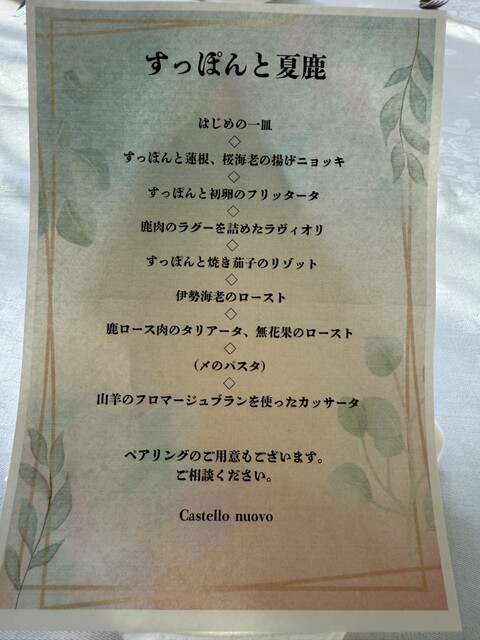 すっぽんと夏鹿
はじめの一皿
◇
すっぽんと蓮根、桜海老の揚げニョッキ
◇
すっぽんと初卵のフリッタータ
◇
鹿肉のラグーを詰めたラヴィオリ
◇
すっぽんと焼き茄子のリゾット
◇
伊勢海老のロースト
◇
鹿ロース肉のタリアータ、無花果のロースト
◇
(〆のパスタ)
◇
山羊のフロマージュブランを使ったカッサータ
ペアリングのご用意もございます。
ご相談ください。
Castello nuovo